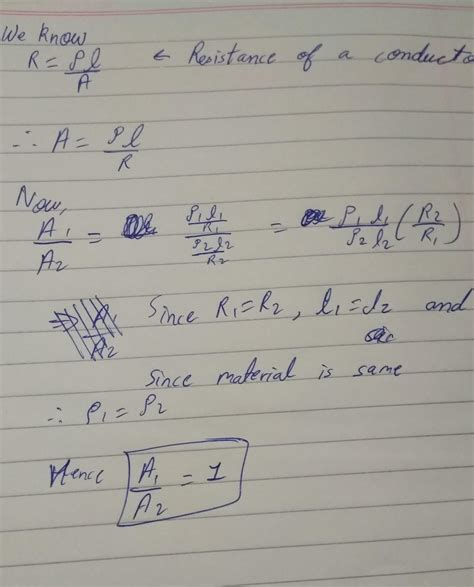 We know
R = ρl/A ← Resistance of a conducto
∴ A = ρl/R
Now,
A₁/A₂ = (ρ₁l₁/R₁)/(ρ₂l₂/R₂) = ρ₁ l₁/ρ₂ l₂ (R₂/R₁)
Since R₁=R₂, l₁=l₂ and
Since material is same
∴ ρ₁ = ρ₂
Hence A₁/A₂ = 1